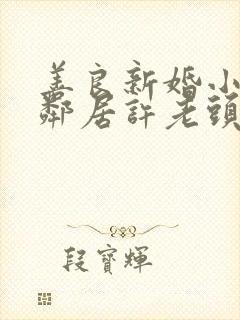 善良新婚小
鄰居許老頭
段寶輝